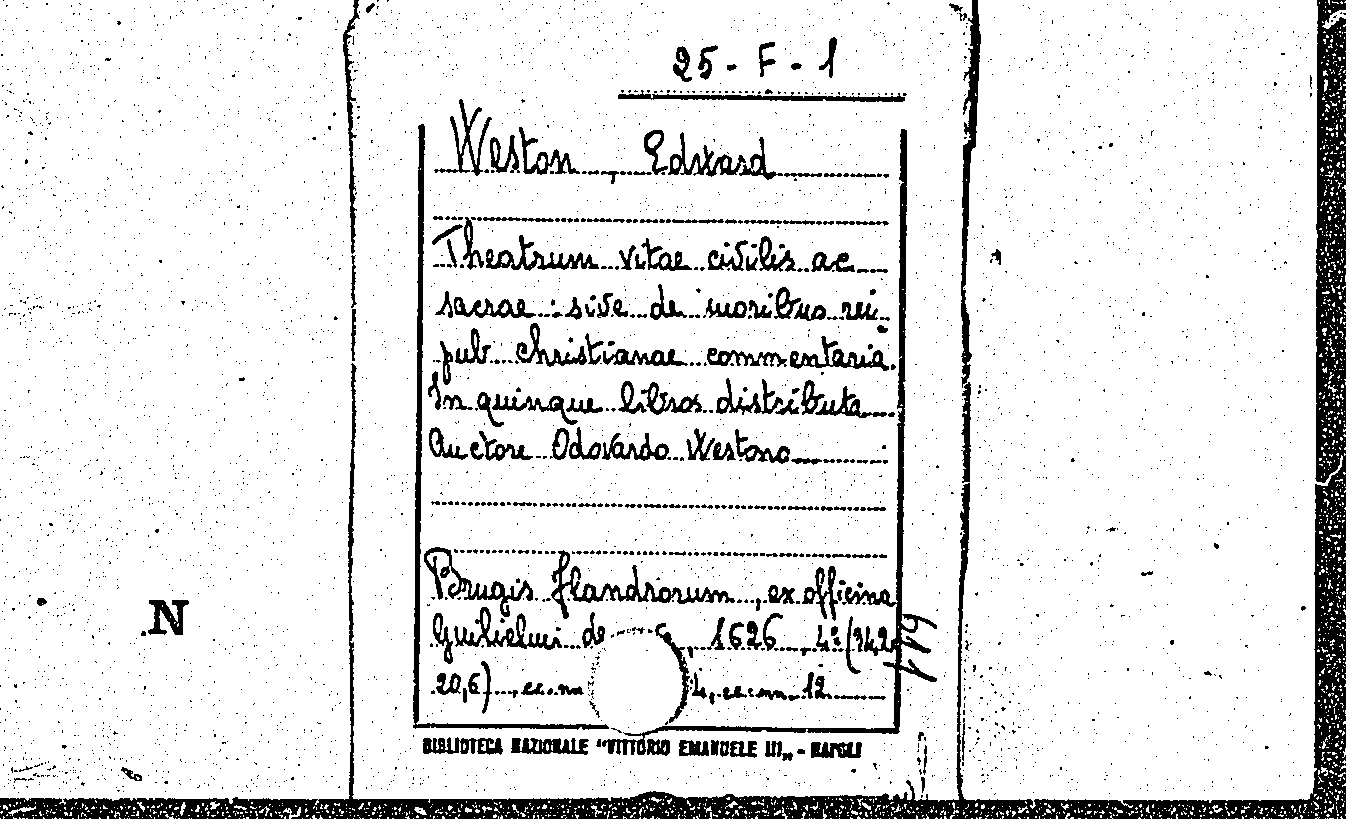 25-F-1
Weston, Edward
Theatrum vitae civilis ac
sacrae : sive de moribus rei.
pub christianae commentaria.
In quinque libros distributa
Auctore Odovardo Westono
Brugis flandrorum, ex officina
Guilielmi de , 1626, 4º (34,2
20,6)
12
N
BIBLIOTECA NAZIONALE "VITTORIO EMANUELE III„ - NAPOLI